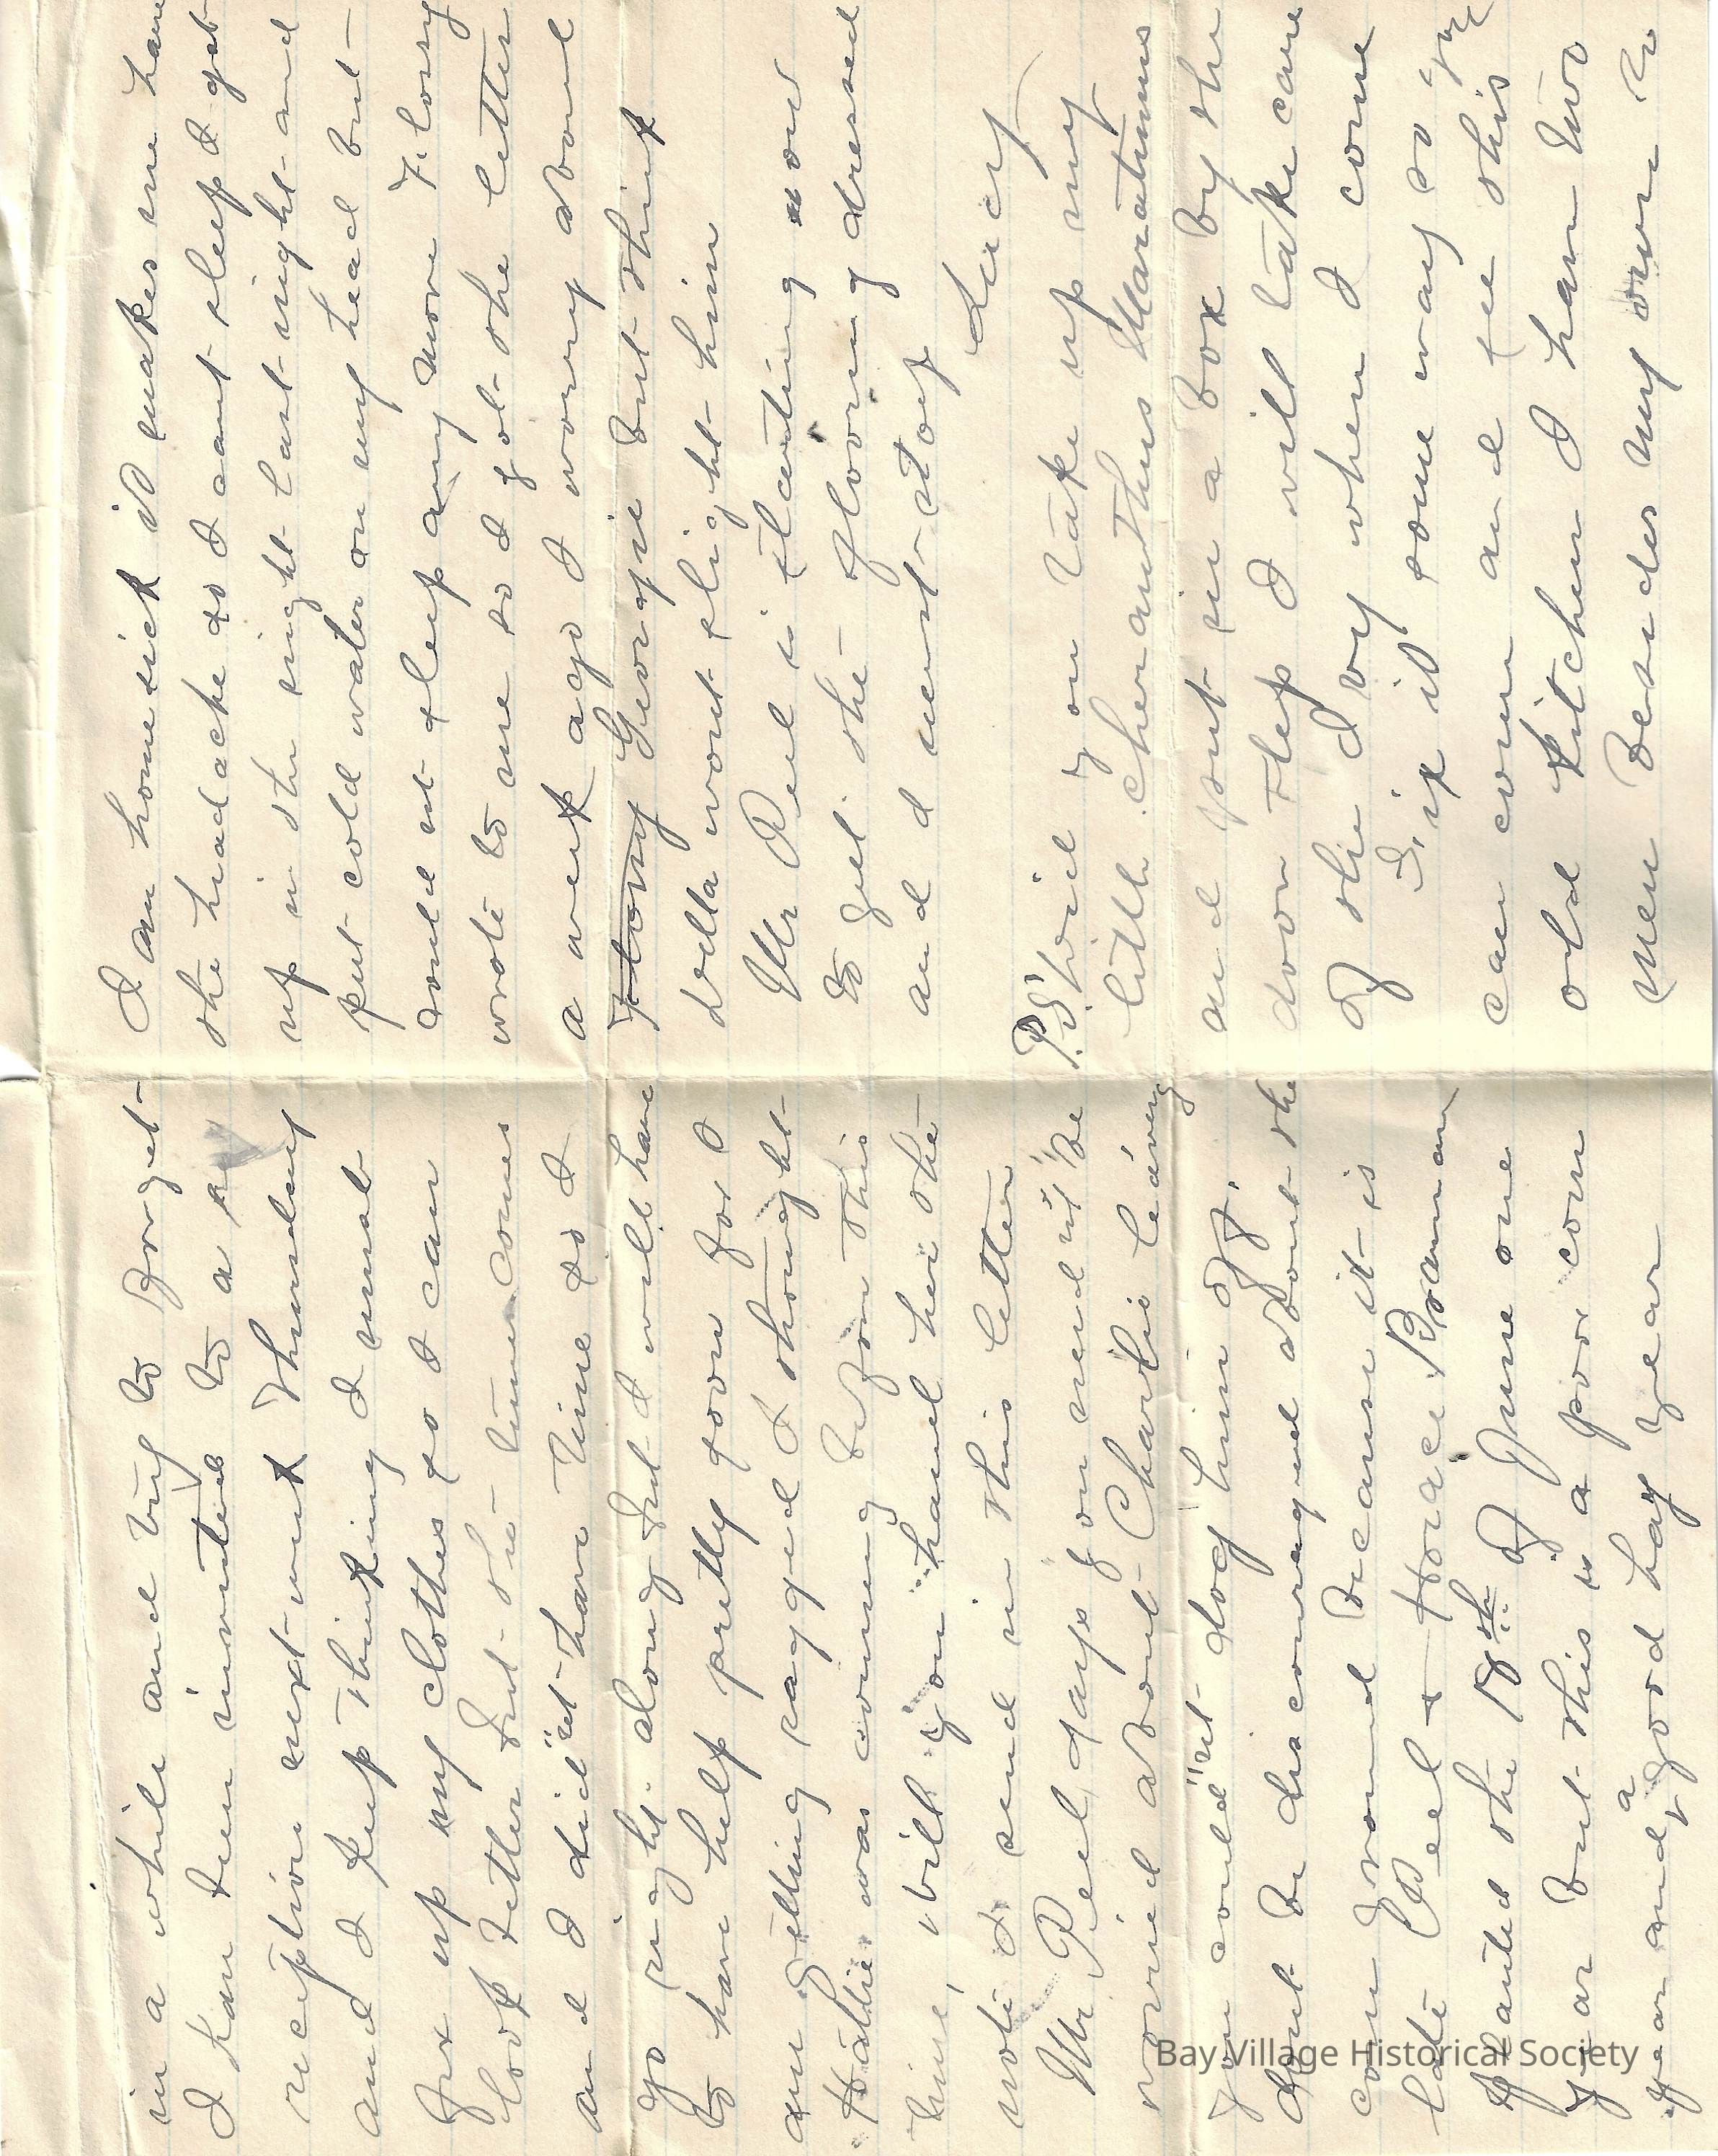 in a while and try to forget
I have been invited to a
reception next week Thursday
and I keep thinking I must
fix up my clothes so I can
look better but the time comes
and I did"nt have time so I
go right along but I will have
to have help pretty soon for I
am getting ragged I thought
Hattie was coming before this
time, will you hand her the
note I send in this letter
Mr Peel says you need n't be
worried about Charlie leaving
you could"nt dog him off.
dont be discouraged about the
corn ground because it is
late Peel & Horace Branman
planted the 18th of June one
year but this is a poor corn
year and a good hay year
I am homesick it makes me have
the headache so I cant sleep I got
up in the night last night and
put cold water on my head but
could nt sleep any more Flossy
wrote to me so I got the letter
a week ago I worry about
Flossy Georgie but think
Della wont slight him
Mr Peel is waiting now
to get the flooring dressed
and and must stop
Lucy
P.S. Will you take up my
little cheranthus Maratimus
and put in a box by the
door step I will take care
of the Ivy when I come
Fix it some way so you
can come and see this
old kitchen I have two
men besides my own to
Bay Village Historical Society